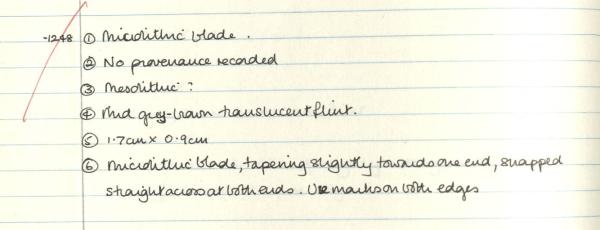 -1248 ① Microlithic blade.
② No provenance recorded
③ Mesolithic?
④ Mid grey-brown translucent flint.
⑤ 1.7cm x 0.9cm
⑥ Microlithic blade, tapering slightly towards one end, snapped
straight across at both ends. Use marks on both edges